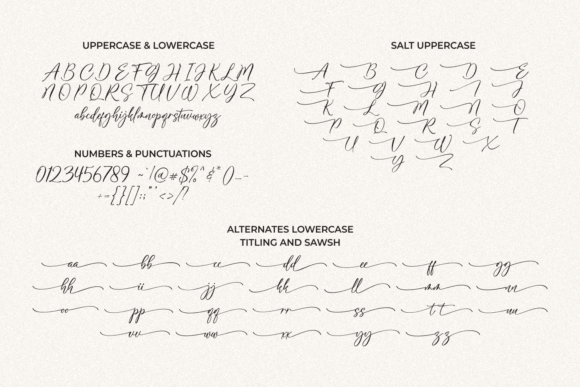 UPPERCASE & LOWERCASE
ABCDEFGHIJKLM
NOPQRSTUVWXYZ
abcdefghijklmnopqrstuvwxyz
NUMBERS & PUNCTUATIONS
0123456789 ~`|@#$%^&*()_-
+={}[]:;"'<>/?
SALT UPPERCASE
A B C D E
F G H I J
K L M N O
P Q R S T
U V W X
Y Z
ALTERNATES LOWERCASE
TITLING AND SAWSH
aa bb cc dd ee ff gg
hh ii jj kk ll mm nn
oo pp qq rr ss tt uu
vv ww xx yy zz